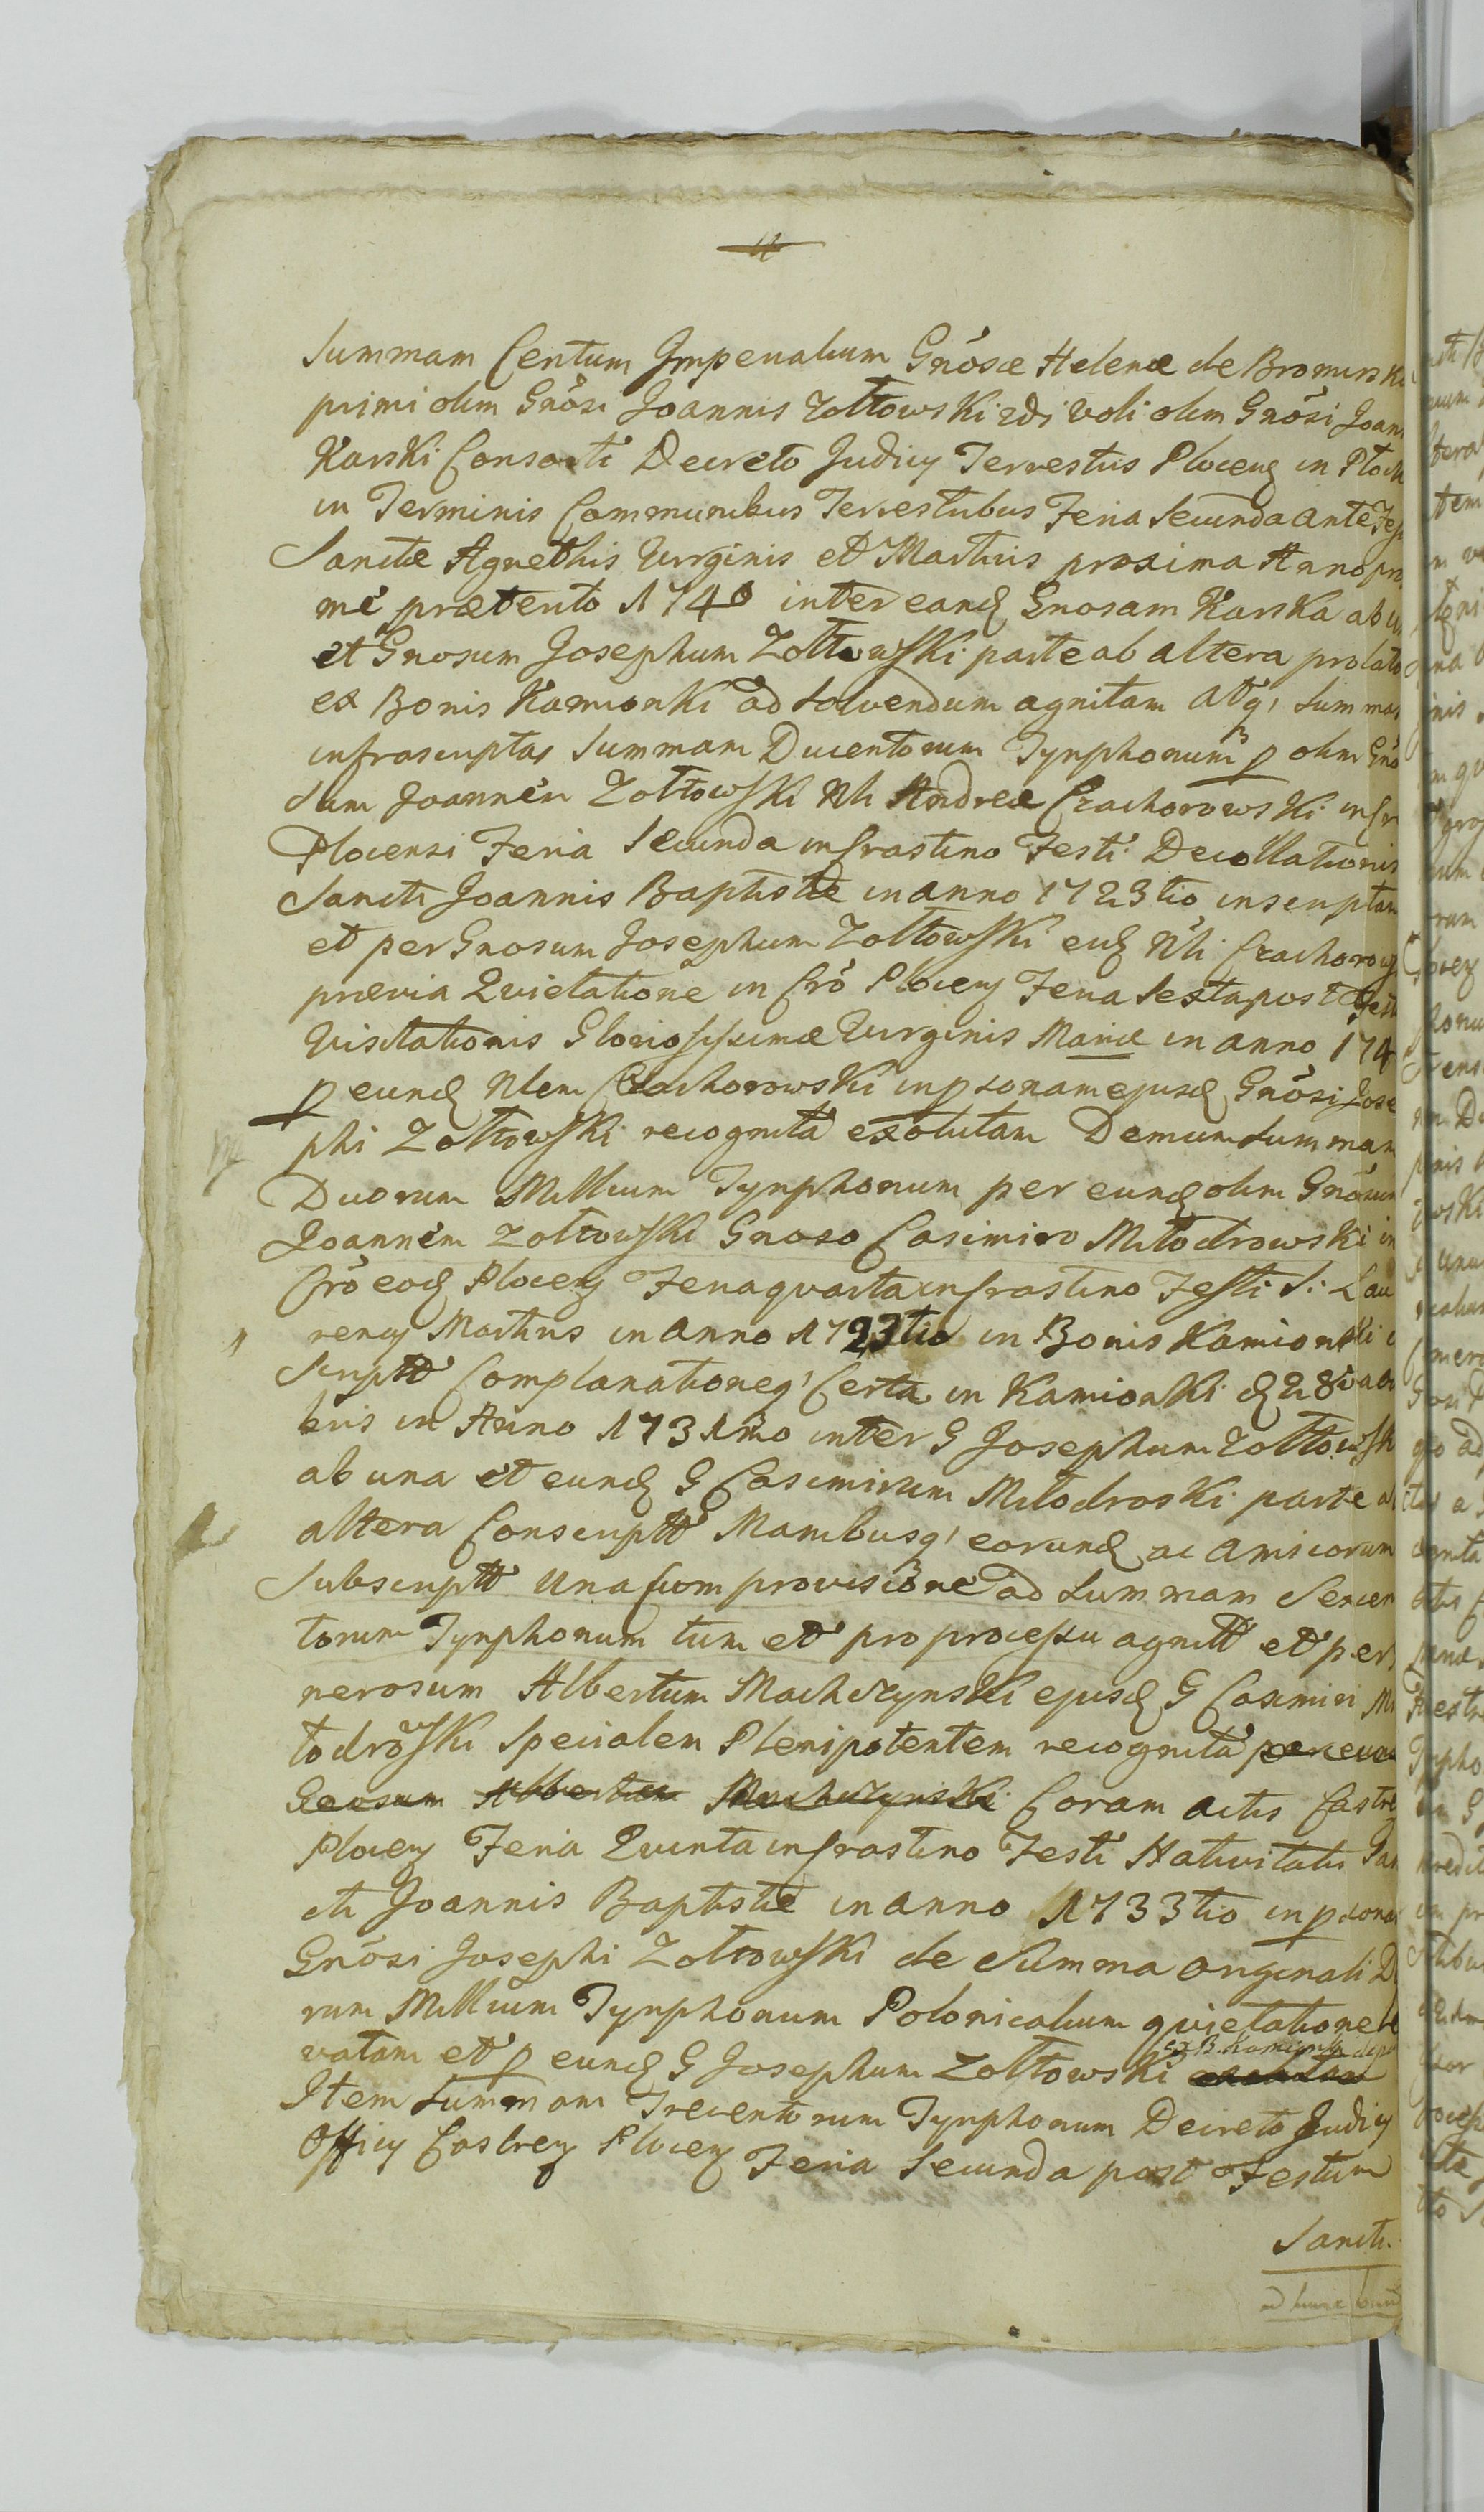 Summam Centum Imperialium Gnosæ Helenæ de Bromirski
primi olim Gnosi Joannis Zołtowski 2di voti olim Gnosi Joan
Karski Consorti Decreto Judicy Terrestris Plocen in Płock
in Terminis Communibus Terrestribus Feria Secunda ante Fes
Sanctæ Agnethis Virginis et Martiris proxima Anno pro
me prætento 1740 inter eand Gnosam Karska ab un
et Gnosum Josephum Zołtowski parte ab altera prolato
ex Bonis Kamionki ad solvendum agnitam atq, summas
infrascriptas Summam Ducentorum Tynphonum p olim Gno
sum Joannem Zołtowski Nli Andreæ Czachorowski in Cr
Plocensi Feria Secunda in Crastino Festi Decollationis
Sancti Joannis Baptistæ in anno 1723tio inscriptam
et per Gnosum Josephum Zołtowski eid Nli Czachorows
prævia Quietatione in Cro Plocen Feria Sexta post Fest
Visitationis Gloriosissimæ Virginis Mariæ in anno 174
p eund Nlem Czachorowski in psonam ejusd Gnosi Jose
phi Zołtowski recognita exolutam Demum Summam
Duorum Millium Tynphonum per eund olim Gnosum
Joannem Zołtowski Gnoso Casimiro Miłodrowski in
Cro eod Plocen Feria quarta in Crastino Festi S: Lau
rency Martiris in anno 1723tio in Bonis Kamionki
Script Complanationeq, Certa in Kamionki d 28
bris in Anno 1731mo inter G Josephum Zołtowsk
ab una et eund G Casimirum Miłodroski parte a
altera Conscript Manibusq, eorund ac amicorum
Subscript Una Cum provisione ad Summam Sexcen
torum Tynphonum tum et pro processu agnitt et per
nerosum Albertum Machczynski ejusd G Casimiri Mi
łodrowski Specialem Plenipotentem recognita per eun
Gnosum Albertum Machczynski Coram actis Castre
Plocen Feria Quinta in Crastino Festi Nativitatis San
cti Joannis Baptistæ in anno 1733tio in psona
Gnosi Josephi Zołtowski de Summa originali D
rum Millium Tynphonum Polonicalium quietatione le
vatam et p eund G Josephum Zołtowski ex B. Kamionki
Item Summam Trecentorum Tynphonum Decreto Judicy
Officy Castren Plocen Feria Secunda post Festum
Sancti